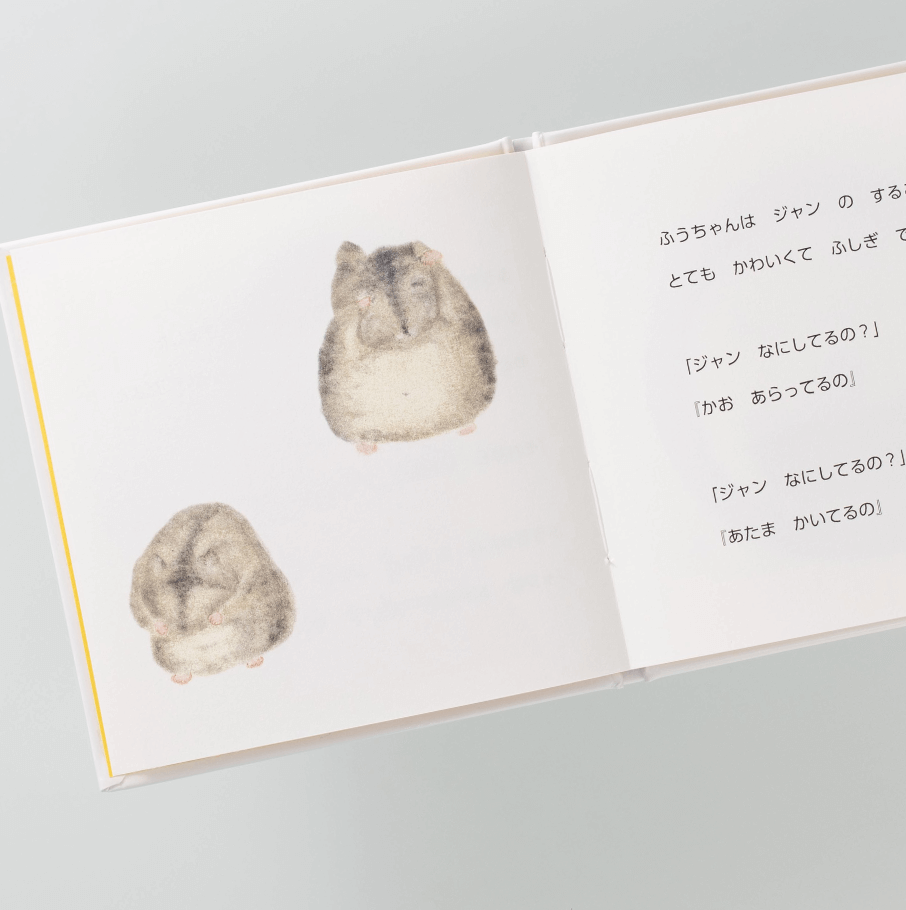 ふうちゃんは　ジャン　の　する
とても　かわいくて　ふしぎ　で
「ジャン　なにしてるの？」
『かお　あらってるの』
「ジャン　なにしてるの？」
『あたま　かいてるの』